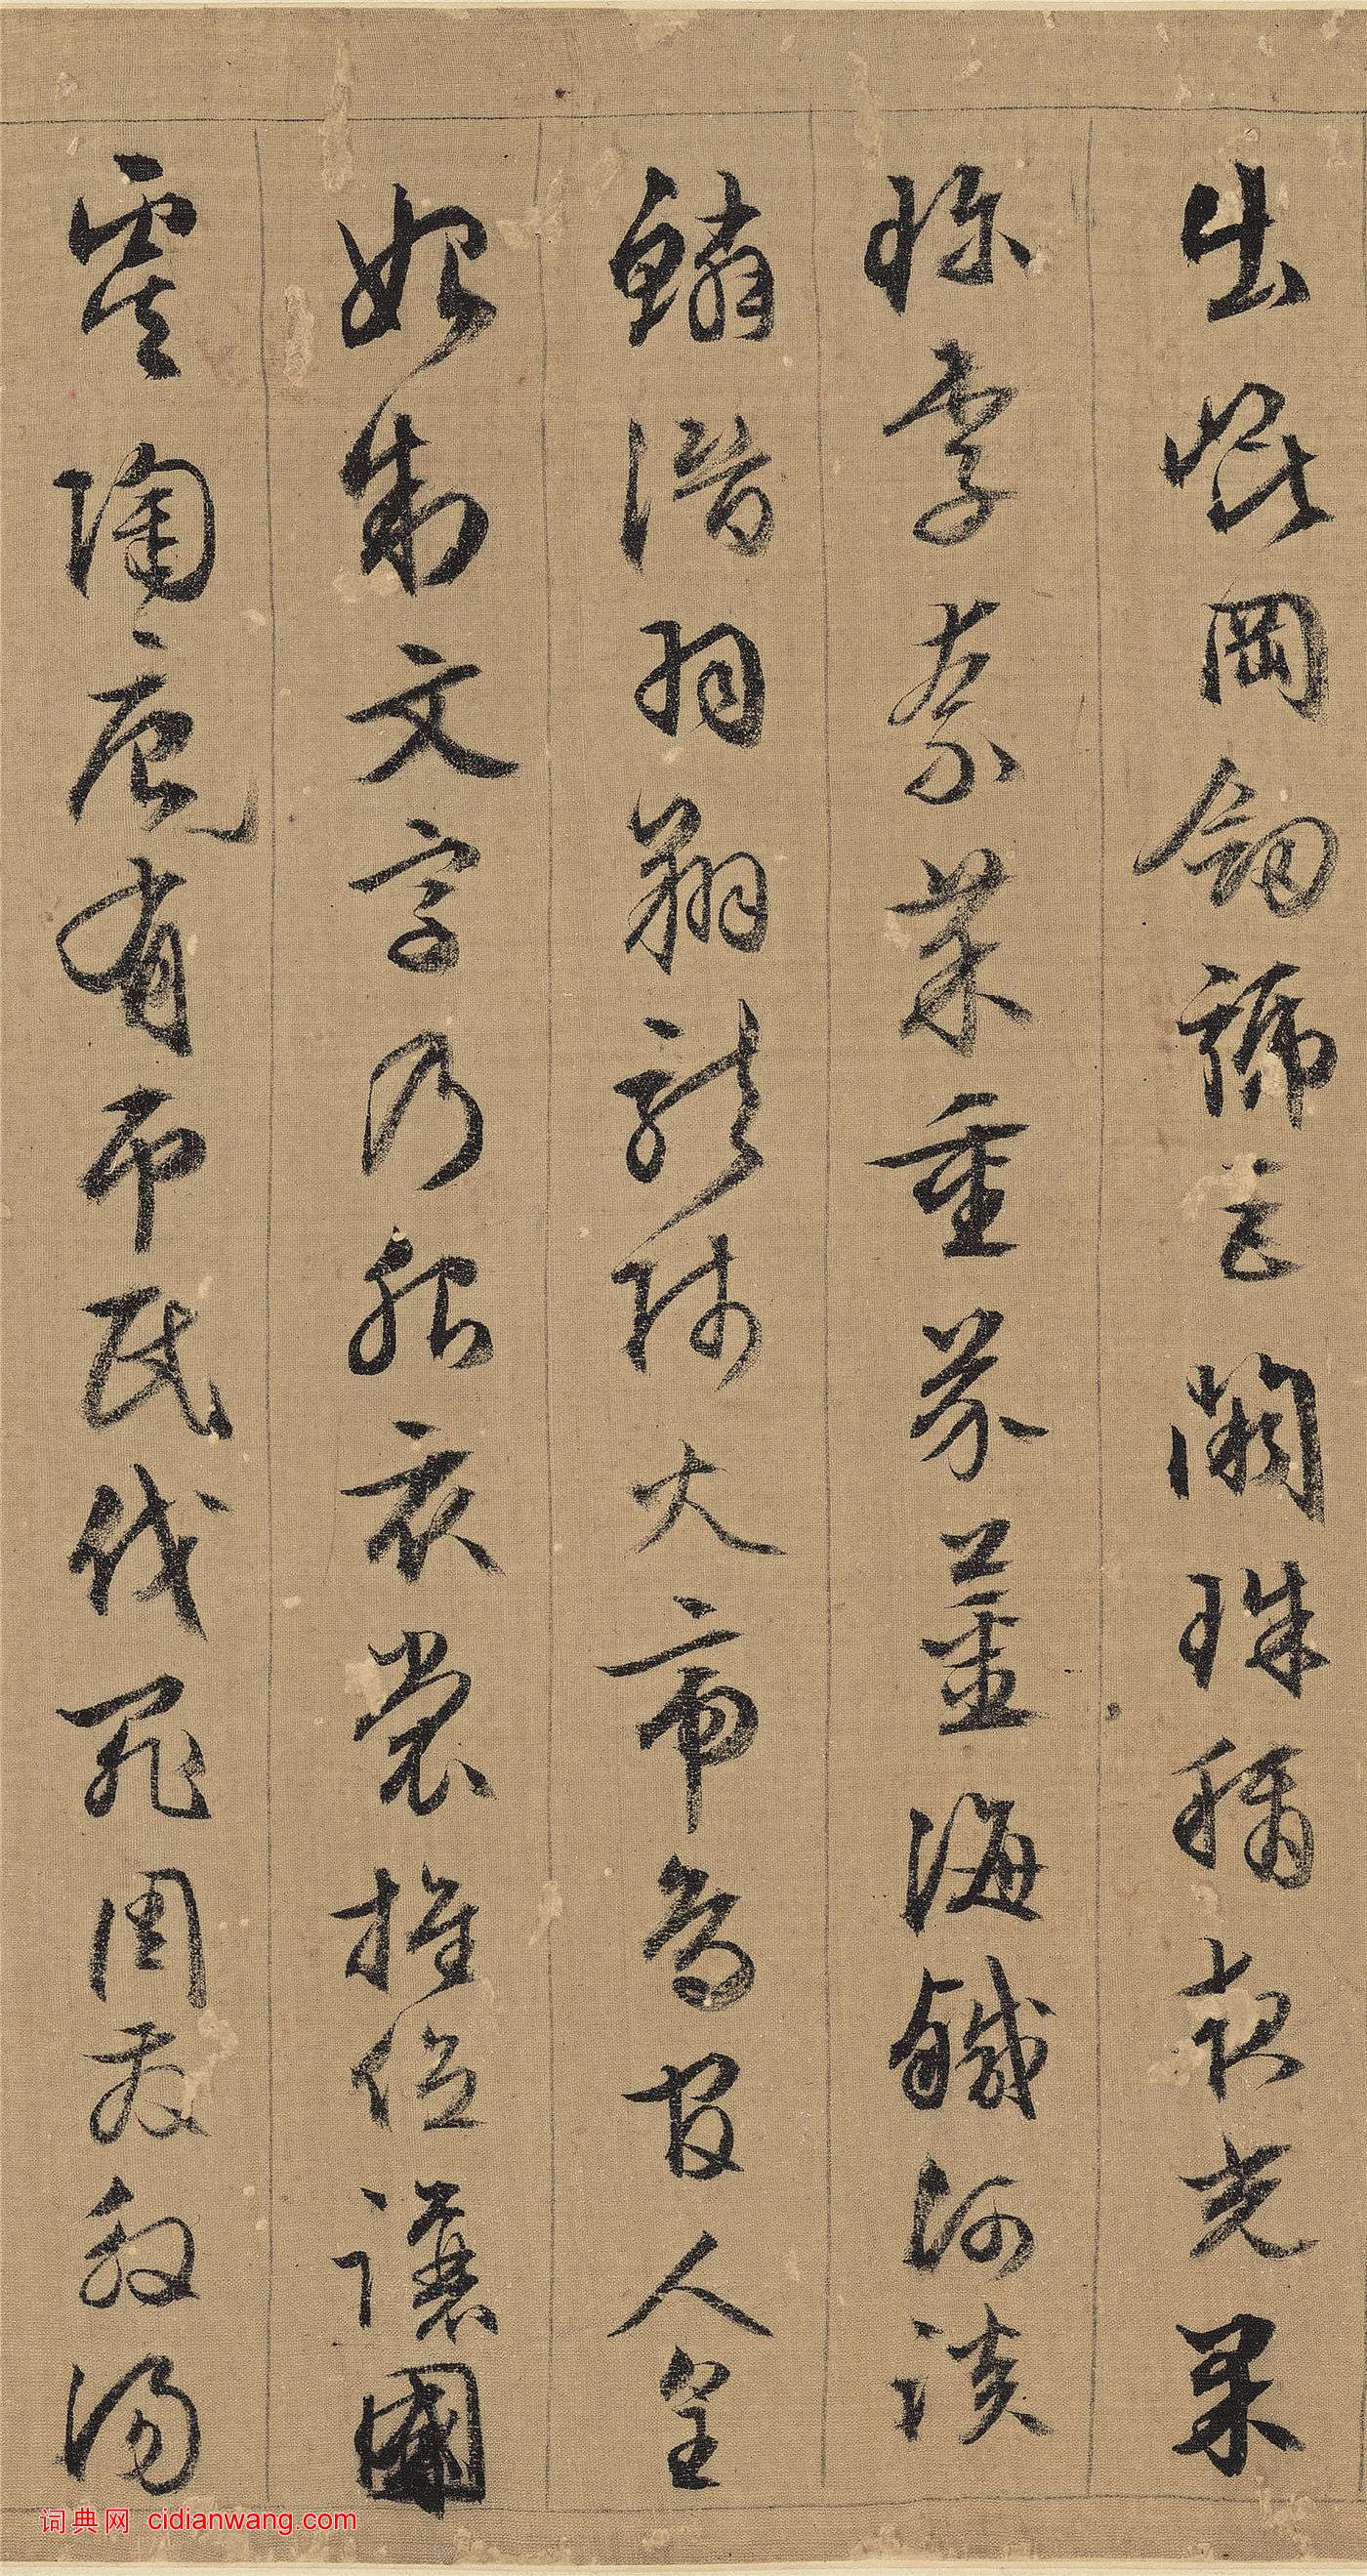 出崑岡劒號巨闕珠稱夜光果
珍李柰菜重芥薑海鹹河淡
鱗潛羽翔龍師火帝鳥官人皇
始制文字乃服衣裳推位讓國
虞陶唐有弔民伐罪周發殷湯
词典网 cidianwang.com